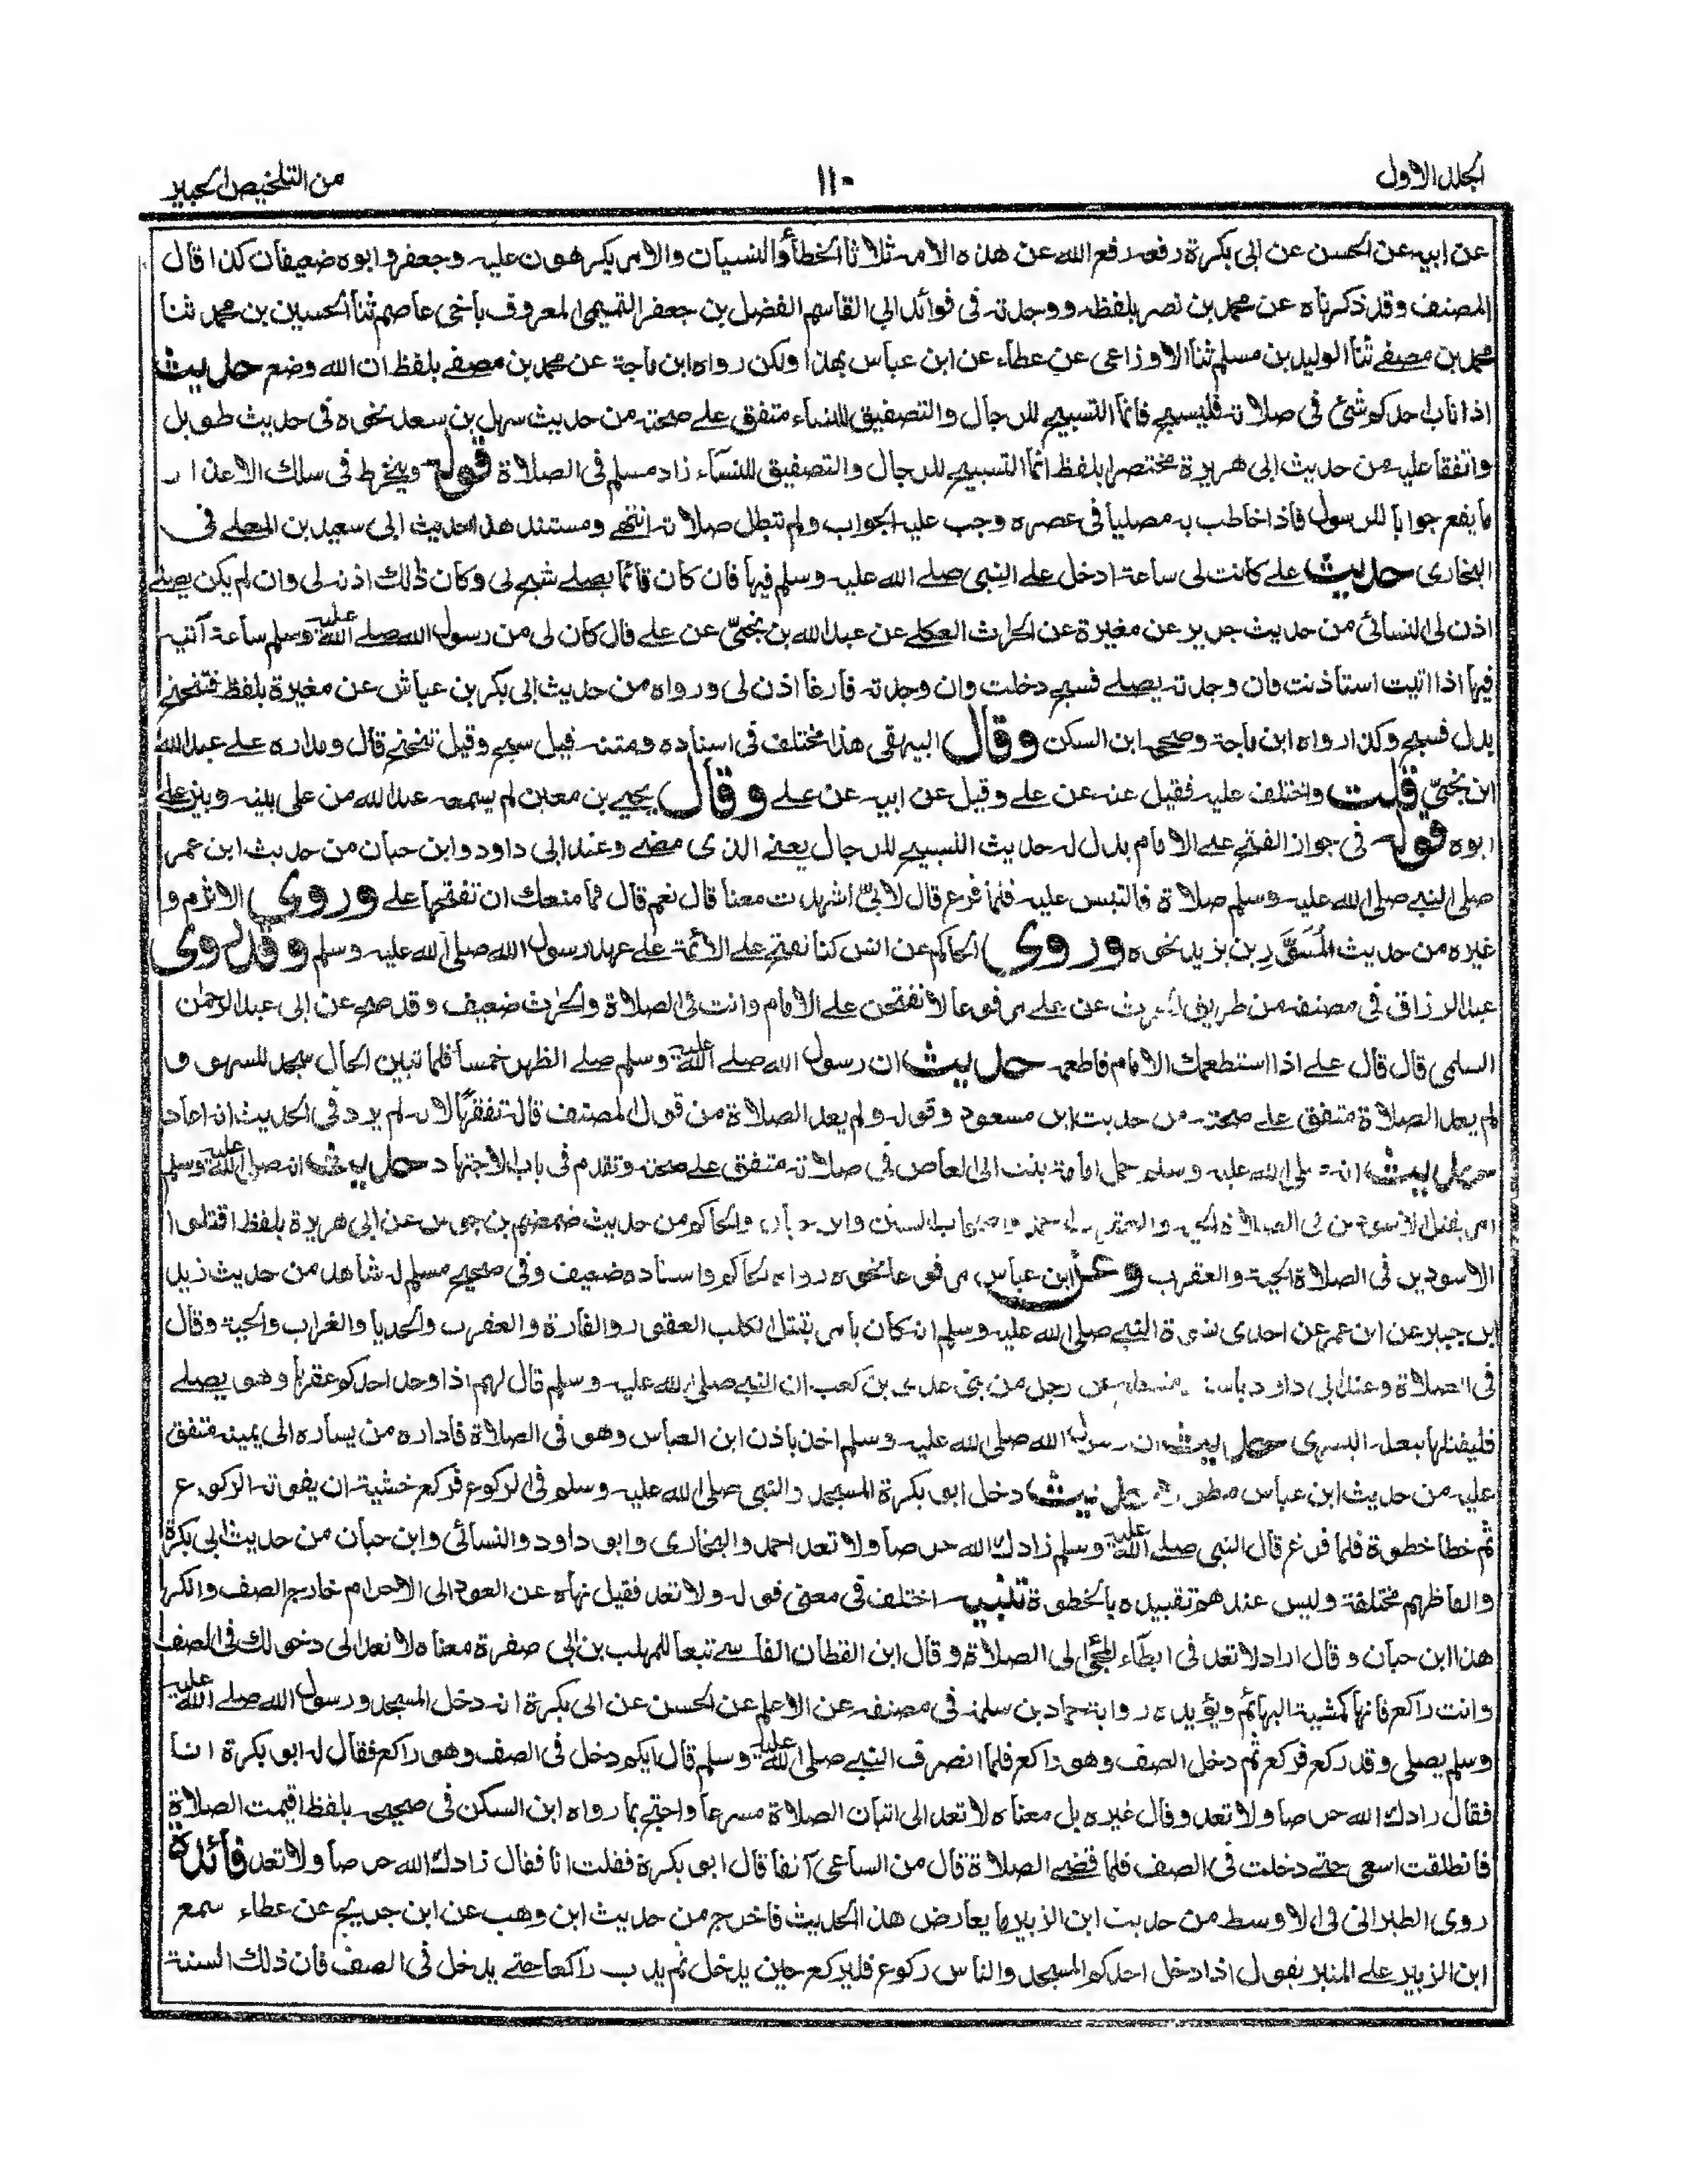 المجلد الاول
١١٠
من التلخيص الحبير
عن ابيه عن الحسن عن ابى بكرة رفعه رفع الله عن هذه الامة ثلاثا الخطأ والنسيان والامر يكرهون عليه وجعفر وابوه ضعيفان كذا قال
المصنف وقد ذكرناه عن محمد بن نصر بلفظه ووجدته فى فوائد ابى القاسم الفضل بن جعفر التميمى المعروف بأخى عاصم ثنا الحسين بن محمد ثنا
محمد بن مصفے ثنا الوليد بن مسلم ثنا الاوزاعى عن عطاء عن ابن عباس بهذا ولكن رواه ابن ماجة عن محمد بن مصفے بلفظ ان الله وضع حديث
اذا ناب احدكم شئ فى صلاته فليسبح فانما التسبيح للرجال والتصفيق للنساء متفق علے صحته من حديث سهل بن سعد نحوه فى حديث طويل
واتفقا عليه من حديث ابى هريرة مختصرا بلفظ انما التسبيح للرجال والتصفيق للنسآء زاد مسلم فى الصلاة قوله وينخرط فى سلك الاعذار
ما يقع جوابا للرسول فاذا خاطب به مصليا فى عصره وجب عليه الجواب ولم تبطل صلاته انتهے ومستند هذا حديث ابى سعيد بن المعلے فى
البخارى حديث علے كانت لى ساعة ادخل علے النبى صلے الله عليه وسلم فيها فان كان قائما يصلے سبح لى وكان ذلك اذنه لى وان لم يكن يصلے
اذن لى النسائى من حديث جرير عن مغيرة عن الحارث العكلے عن عبد الله بن نجىّ عن علے قال كان لى من رسول الله صلے الله عليه وسلم ساعة آتيه
فيها اذا اتيت استاذنت وان وجدته يصلے فسبح دخلت وان وجدته فارغا اذن لى ورواه من حديث ابى بكر بن عياش عن مغيرة بلفظ فتنحنح
بدل فسبح وكذا رواه ابن ماجة وصححه ابن السكن وقال البيهقى هذا مختلف فى اسناده ومتنه فقيل سبح وقيل تنحنح قال ومداره علے عبد الله
ابن نجىّ قلت واختلف عليه فقيل عنه عن علے وقيل عن ابيه عن علے وقال يحيے بن معين لم يسمعه عبد الله من على بينه وبين علے
ابوه قوله فى جواز الفتح علے الامام بدل له حديث التسبيح للرجال يعنے الذى مضے وعند ابى داود وابن حبان من حديث ابن عمر
صلى النبے صلى الله عليه وسلم صلاة فالتبس عليه فلما فرغ قال لابىّ اشهدت معنا قال نعم قال فما منعك ان تفتحها علے وروى الاثرم و
غيره من حديث المُسَوَّرِ بن يزيد نحوه وروى الحاكم عن انس كنا نفتح علے الائمة علے عهد رسول الله صلى الله عليه وسلم وقد روى
عبد الرزاق فى مصنفه من طريق الحارث عن علے مرفوعا لا تفتحن علے الامام وانت فى الصلاة والحارث ضعيف وقد صح عن ابى عبد الرحمٰن
السلمى قال قال علے اذا استطعمك الامام فاطعمه حديث ان رسول الله صلے الله عليه وسلم صلے الظهر خمسا فلما تبين الحال سجد للسهو و
لم يعد الصلاة متفق علے صحته من حديث ابن مسعود وقوله ولم يعد الصلاة من قول المصنف قاله تفقها لانه لم يرد فى الحديث انه اعاد
حديث انه صلى الله عليه وسلم حمل امامة بنت ابى العاص فى صلاته متفق علے صحته وتقدم فى باب الاجتهاد حديث انه صلى الله عليه وسلم
امر بقتل الاسودين فى الصلاة الحية والعقرب احمد واصحاب السنن وابن حبان والحاكم من حديث ضمضم بن جوس عن ابى هريرة بلفظ اقتلوا
الاسودين فى الصلاة الحية والعقرب وعن ابن عباس مرفوعا نحوه رواه الحاكم واسناده ضعيف وفى صحيح مسلم له شاهد من حديث زيد
ابن جبير عن ابن عمر عن احدى نسوة النبے صلى الله عليه وسلم انه كان يأمر بقتل الكلب العقور والفأرة والعقرب والحديا والغراب والحية وقال
فى الصلاة وعند ابى داود باسناد منقطع عن رجل من بنى عدى بن كعب ان النبے صلى الله عليه وسلم قال لهم اذا وجد احدكم عقربا وهو يصلے
فليقتلها بنعله اليسرى حديث ان رسول الله صلى الله عليه وسلم اخذ باذن ابن العباس وهو فى الصلاة فأداره من يساره الى يمينه متفق
عليه من حديث ابن عباس مطولا حديث دخل ابو بكرة المسجد والنبى صلى الله عليه وسلم فى الركوع فركع خشية ان يفوته الركوع
ثم خطا خطوة فلما فرغ قال النبى صلے الله عليه وسلم زادك الله حرصا ولا تعد احمد والبخارى وابو داود والنسائى وابن حبان من حديث ابى بكرة
والفاظهم مختلفة وليس عندهم تقييده بالخطوة تنبيه اختلف فى معنى قوله ولا تعد فقيل نهاه عن العود الى الاحرام خارج الصف وانكر
هذا ابن حبان وقال اراد لا تعد فى ابطاء المجئ الى الصلاة وقال ابن القطان الفاسے تبعا للمهلب بن ابى صفرة معناه لا تعد الى دخولك فى الصف
وانت راكع فانها كمشية البهائم ويؤيده رواية حماد بن سلمة فى مصنفه عن الاعلم عن الحسن عن ابى بكرة انه دخل المسجد ورسول الله صلے الله عليه
وسلم يصلى وقد ركع فركع ثم دخل الصف وهو راكع فلما انصرف النبے صلى الله عليه وسلم قال ايكم دخل فى الصف وهو راكع فقال له ابو بكرة انا
فقال زادك الله حرصا ولا تعد وقال غيره بل معناه لا تعد الى اتيان الصلاة مسرعا واحتج بما رواه ابن السكن فى صحيحه بلفظ اقيمت الصلاة
فانطلقت اسعى حتے دخلت فى الصف فلما قضے الصلاة قال من الساعى آنفا قال ابو بكرة فقلت انا فقال زادك الله حرصا ولا تعد فائدة
روى الطبرانى فى الاوسط من حديث ابن الزبير ما يعارض هذا الحديث فاخرج من حديث ابن وهب عن ابن جريج عن عطاء سمع
ابن الزبير علے المنبر يقول اذا دخل احدكم المسجد والناس ركوع فليركع حين يدخل ثم يدب راكعا حتے يدخل فى الصف فان ذلك السنة